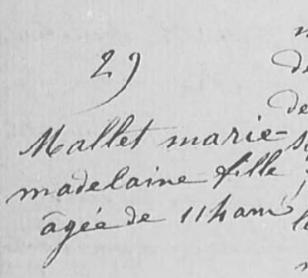 29
Mallet marie-
madelaine fille
âgée de 11 h ans